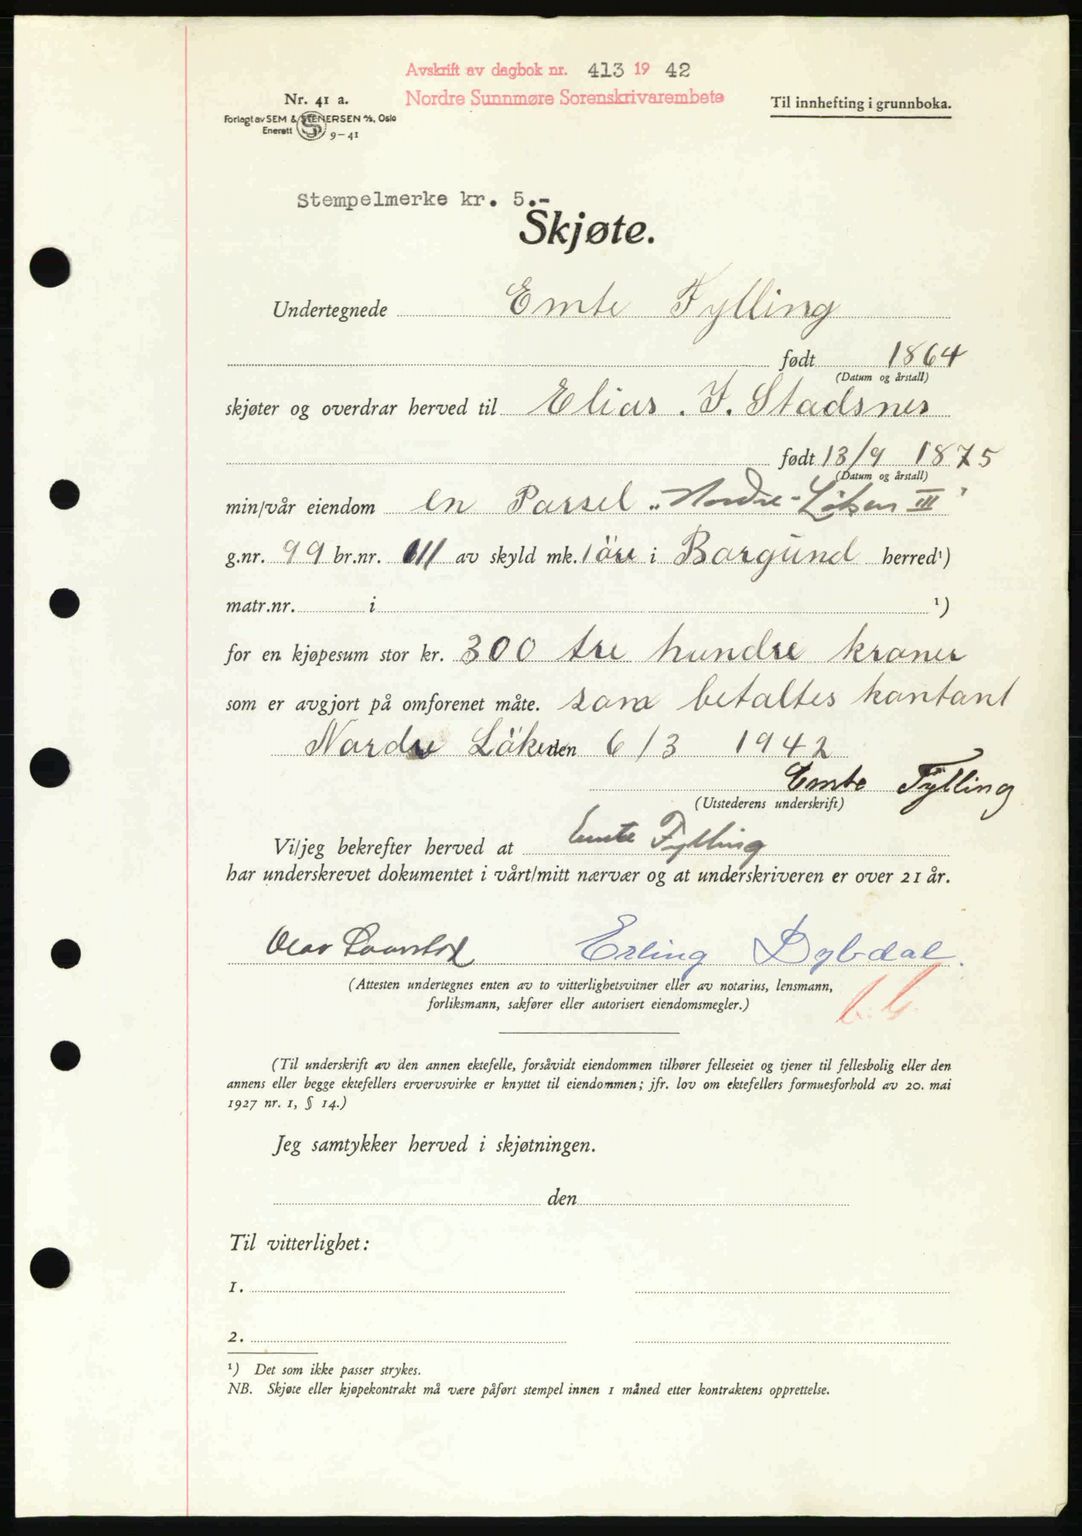 Avskrift av dagbok nr. 413 19 42
Nordre Sunnmøre Sorenskrivarembete
Nr. 41 a.
Til innhefting i grunnboka.
Forlagt av SEM & STENERSEN A/S, Oslo
Enerett 9-41
Stempelmerke kr. 5.-
Skjøte.
Undertegnede Emte Fylling
født 1864
(Datum og årstall)
skjøter og overdrar herved til Elias. I. Stadsnes
født 13/9 1875
(Datum og årstall)
min/vår eiendom en Parsel „Nordre-Löken III"
g.nr. 99 br.nr. 111 av skyld mk. 1 öre i Borgund herred¹)
matr.nr. i ¹)
for en kjøpesum stor kr. 300 tre hundre kroner
som er avgjort på omforenet måte. som betaltes kontant
Nordre Löken den 6/3 1942
Emte Fylling
(Utstederens underskrift)
Vi/jeg bekrefter herved at Emte Fylling
har underskrevet dokumentet i vårt/mitt nærvær og at underskriveren er over 21 år.
Erling Dybdal.
(Attesten undertegnes enten av to vitterlighetsvitner eller av notarius, lensmann,
forliksmann, sakfører eller autorisert eiendomsmegler.)
(Til underskrift av den annen ektefelle, forsåvidt eiendommen tilhører felleseiet og tjener til fellesbolig eller den
annens eller begge ektefellers ervervsvirke er knyttet til eiendommen; jfr. lov om ektefellers formuesforhold av 20. mai
1927 nr. 1, § 14.)
Jeg samtykker herved i skjøtningen.
den
Til vitterlighet:
1.
2.
¹) Det som ikke passer strykes.
NB. Skjøte eller kjøpekontrakt må være påført stempel innen 1 måned etter kontraktens opprettelse.